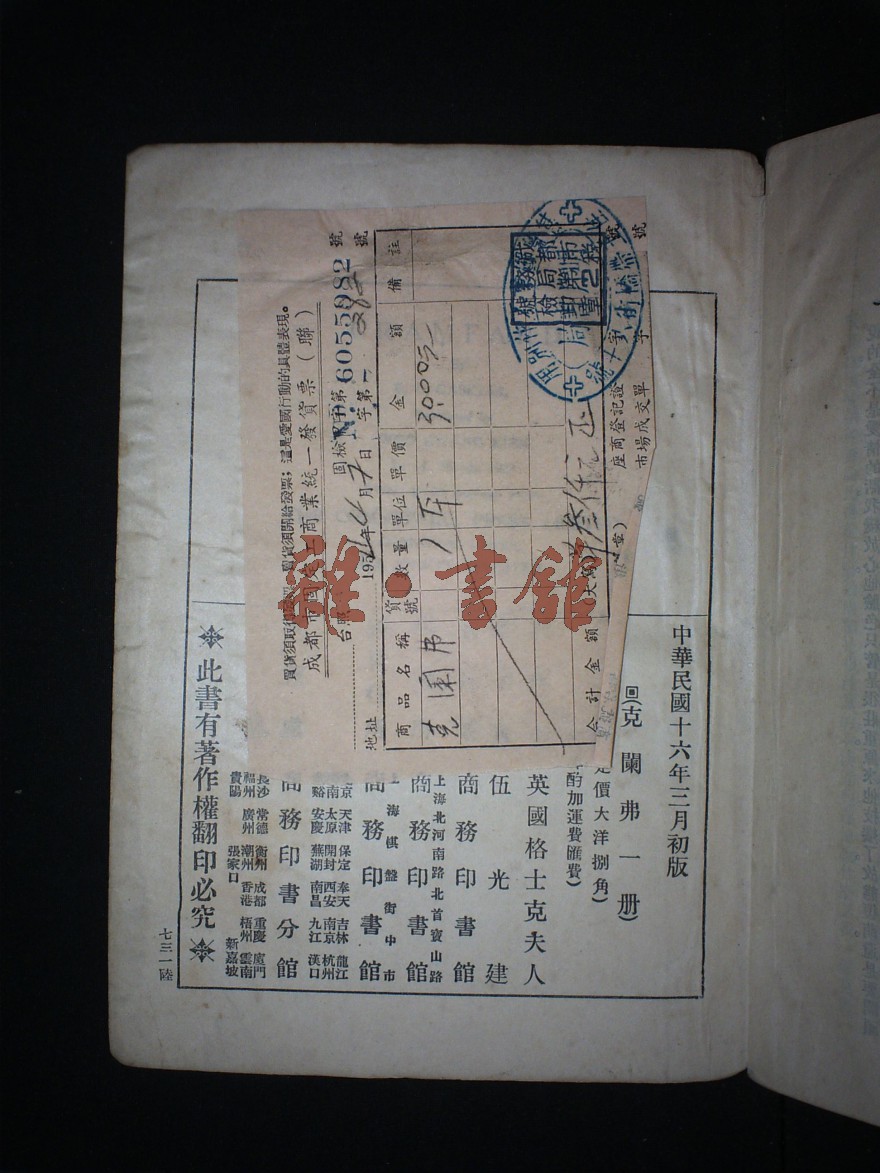 中華民國十六年三月初版
(回克闌弗一册)
定價大洋捌角)
(酌加運費匯費)
英國格士克夫人
伍光建
商務印書館
上海北河南路北首寶山路
商務印書館
上海棋盤街中市
商務印書館
京 天津 保定 奉天 吉林 龍江
南 太原 開封 西安 南京 杭州
谿 安慶 蕪湖 南昌 九江 漢口
商務印書分館
長沙 常德 衡州 成都 重慶 廈門
福州 廣州 潮州 香港 梧州 雲南
貴陽 張家口 新嘉坡
此書有著作權翻印必究
七三一陸
買貨須取得發票，賣貨須開給發票；這是愛國行動的具體表現。
成都市固定工商業統一發貨票(聯)
固檢 字第 6055982 號
字第一 282 號
台照
195 年 4 月 7 日
地址
商品名稱 貨號 數量 單位 單價 金額 備註
克闌弗 1 本 3000元
合計金額 (大寫) 叁仟元正
座商登記證 字 號
市場成交單 字 號
雜·書館